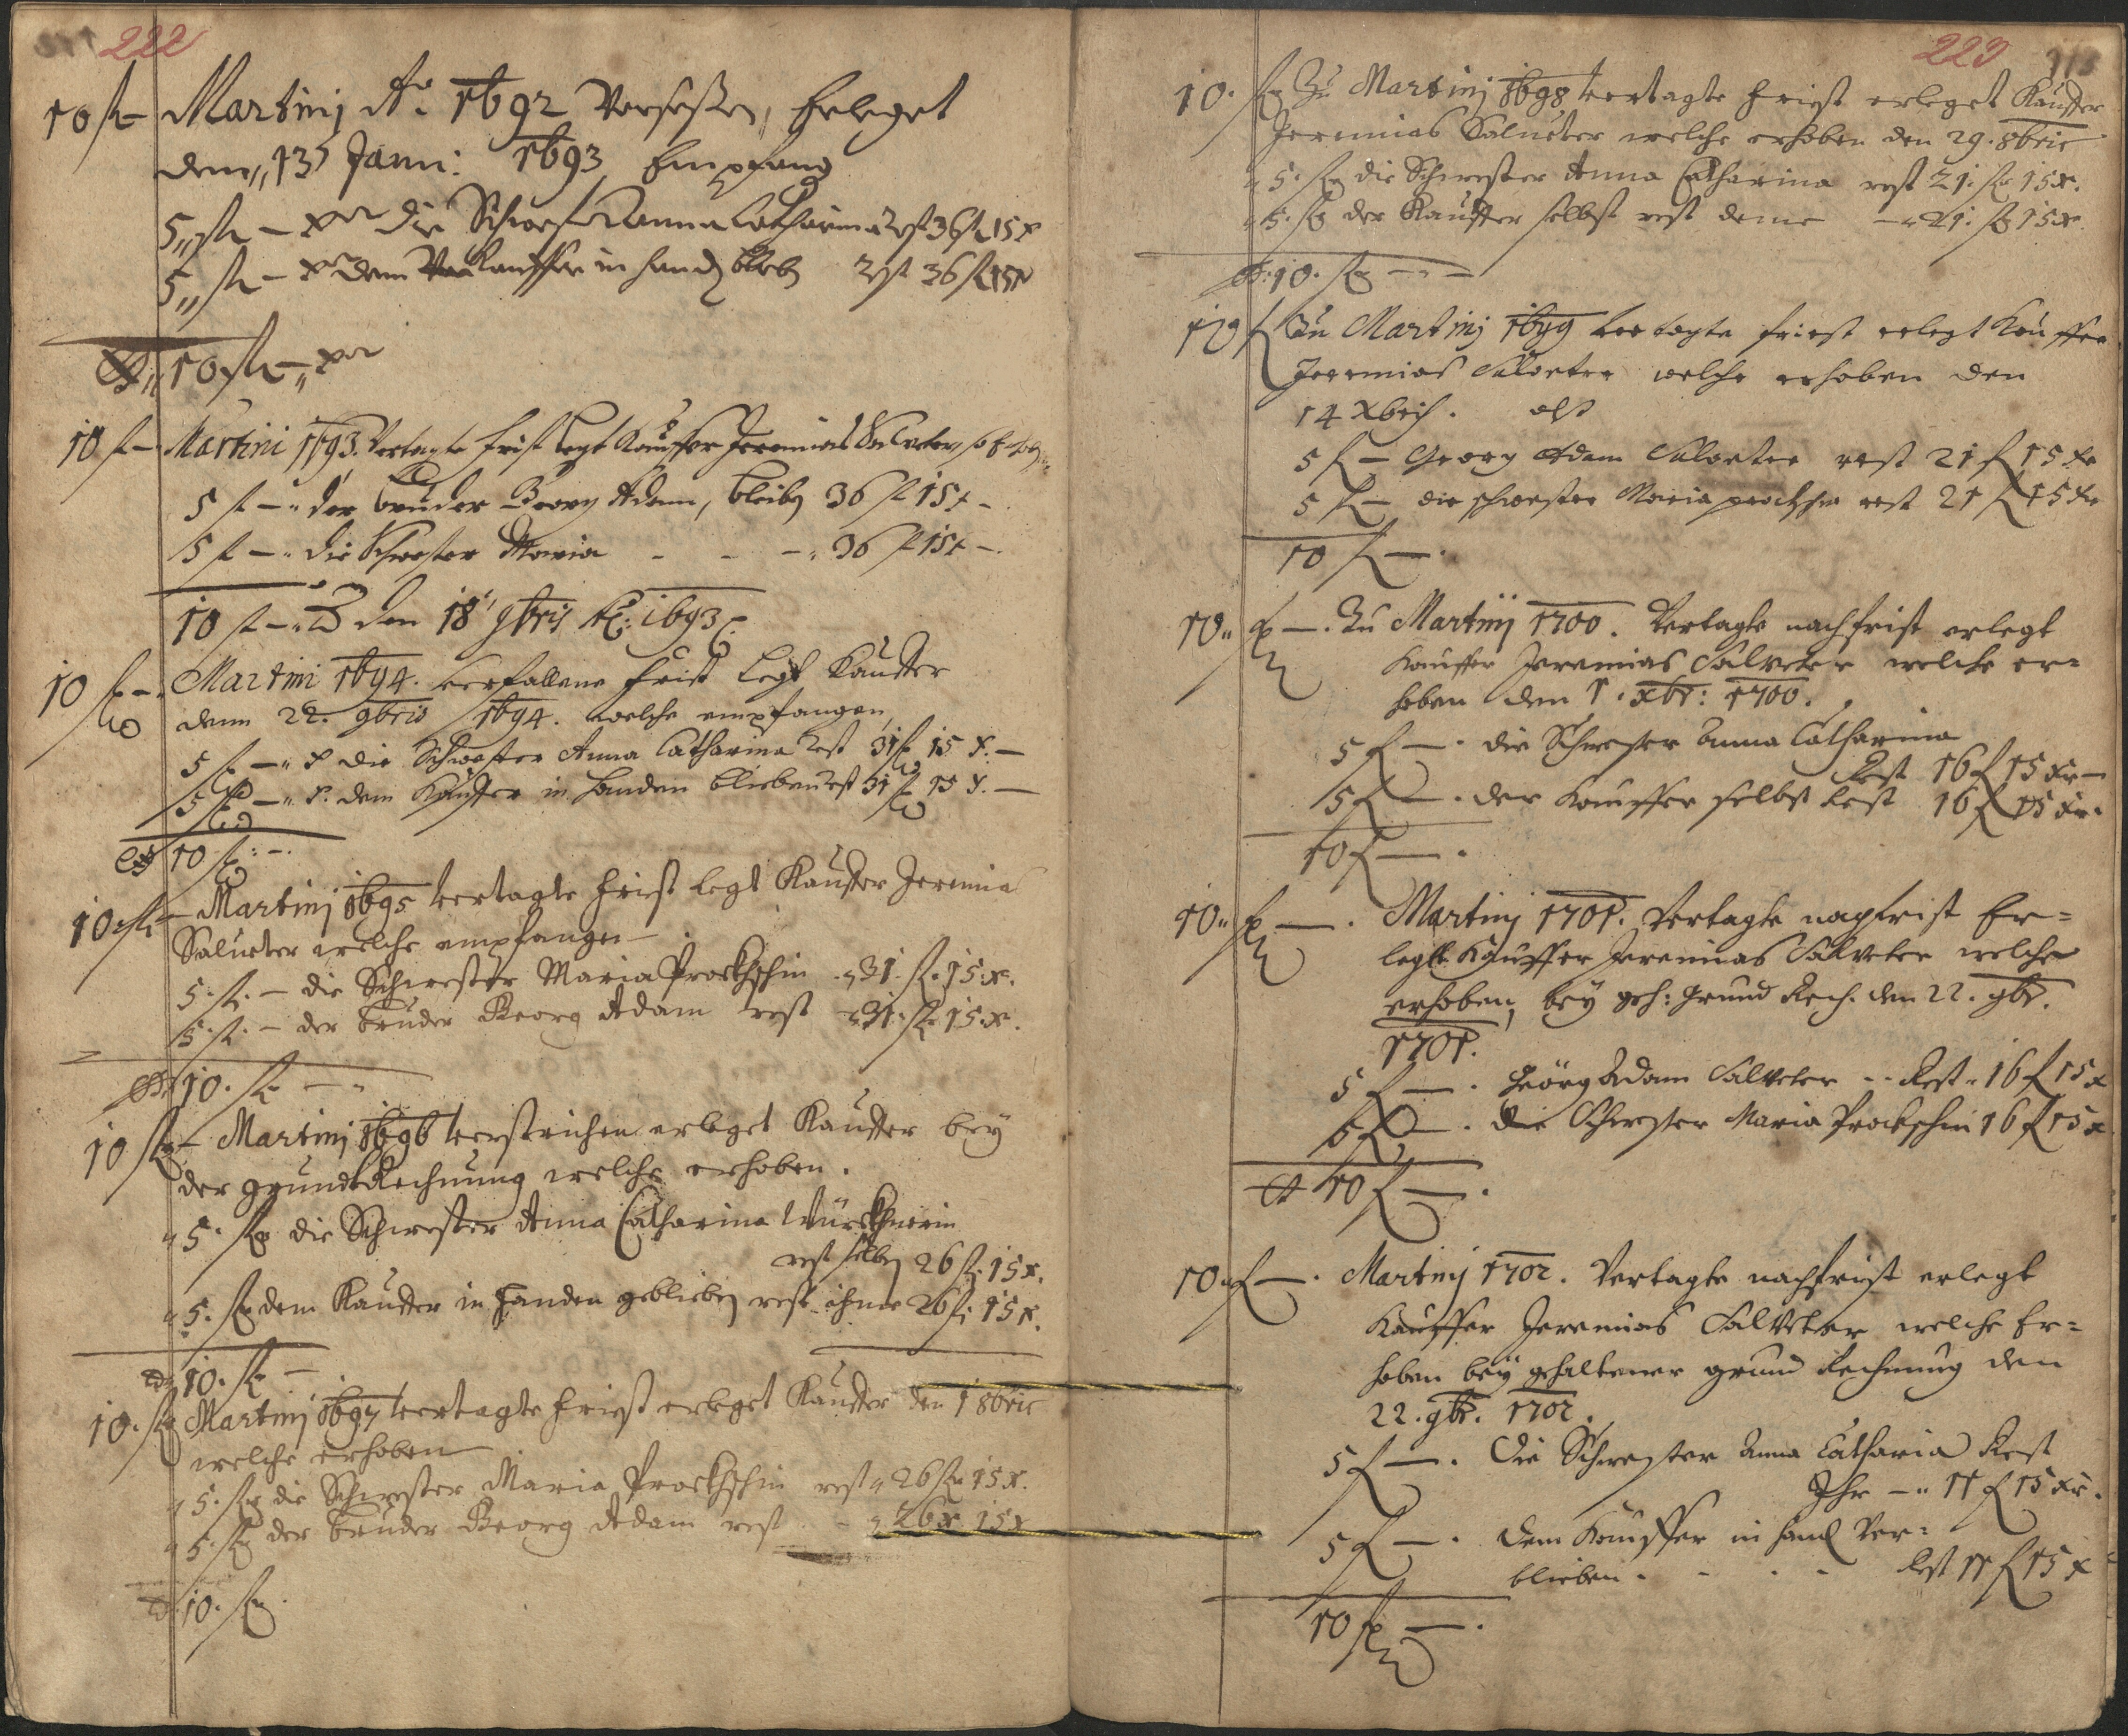 222
10 fl — Martinj Ao. 1692 Versessen, Erleget
den 13 Janu: 1693 Empfang
5 fl — xr die Schwester Anna Catharina rest 36 fl 15 x
5 fl — xr dem Kauffer in handen blieb rest 36 fl 15 x
10 fl — xr
10 f — Martini 1693. Vertagte frist legt Kauffer Jeremias Salveter
5 f — der bruder Georg Adam, bleibt 36 f 15 x —
5 f — die Schwester Maria — — 36 f 15 x —
10 f — den 18 9bris Ao: 1693
10 f — Martini 1694. verfallene frist legt Kauffer
denn 22. 9bris 1694. welche empfangen
5 f — x die Schwester Anna Catharina rest 31 f 15 x. —
5 f — x. dem Kauffer in handen blieben rest 31 f 15 x. —
10 f : —
10. fl — Martinj 1695 vertagte frist legt Kauffer Jeremia
Salueter welche empfangen —
5. fl. — die Schwester Maria Prockschin 31. fl. 15. x.
5. fl. — der bruder Georg Adam rest 31. fl. 15. x.
10. fl — —
10 fl — Martinj 1696 verstrichen erleget Kauffer bey
der grundt Rechnung welche erhoben.
5. fl die Schwester Anna Catharina
rest selben 26 fl. 15 x.
5. fl dem Kauffer in handen geblieben rest ihme 26 fl. 15 x.
10. fl —
10. fl Martinj 1697 vertagte frist erleget Kauffer den 1 8bris
welche erhoben
5. fl die Schwester Maria Prockschin rest 26 fl 15 x.
5. fl der bruder Georg Adam rest — 26 x 15 x
10. fl.
223
10. fl Zu Martinj 1698 vertagte frist erleget Kauffer
Jeremias Salueter welche erhoben den 29. 8bris
5. fl die Schwester Anna Catharina rest 21. fl 15 x.
5. fl der Kauffer selbst rest deme — 21. fl 15 x.
10. fl — —
10 f Zu Martinj 1699 vertagte frist erlegt Kauffer
Jeremias Salveter welche erhoben den
14 Xbris. alß
5 f — Georg Adam Salveter rest 21 f 15 xr
5 f — die schwester Maria prockschin rest 21 f 15 xr
10 f — .
10 f — . Zu Martinij 1700. Vertagte nachfrist erlegt
Kauffer Jeremias Salveter welche er=
hoben den 1. xbr: 1700.
5 f — . die Schwester Anna Catharina
Rest 16 f 15 xr —
5 f — . der Kauffer selbst Rest 16 f 15 xr.
10 f — .
10 f — . Martinj 1701. Vertagte nachfrist Er=
legt Kauffer Jeremias Salveter welche
erhoben, bey geh: Grund Rech. den 22. 9br.
1701.
5 f — . Geörg Adam Salveter -- Rest 16 f 15 x
5 f — . die Schwester Maria Prockschin 16 f 15 x
10 f — .
10 f — . Martinij 1702. Vertagte nachfrist erlegt
Kauffer Jeremias Salveter welche Er=
hoben bey gehaltener grund Rechnung den
22. 9br. 1702.
5 f — . Die Schwester Anna Catharia Rest
Ihr — 11 f 15 xr.
5 f — . dem Kauffer in hand Ver=
blieben . - . . Rest 11 f 15 x
10 f — .